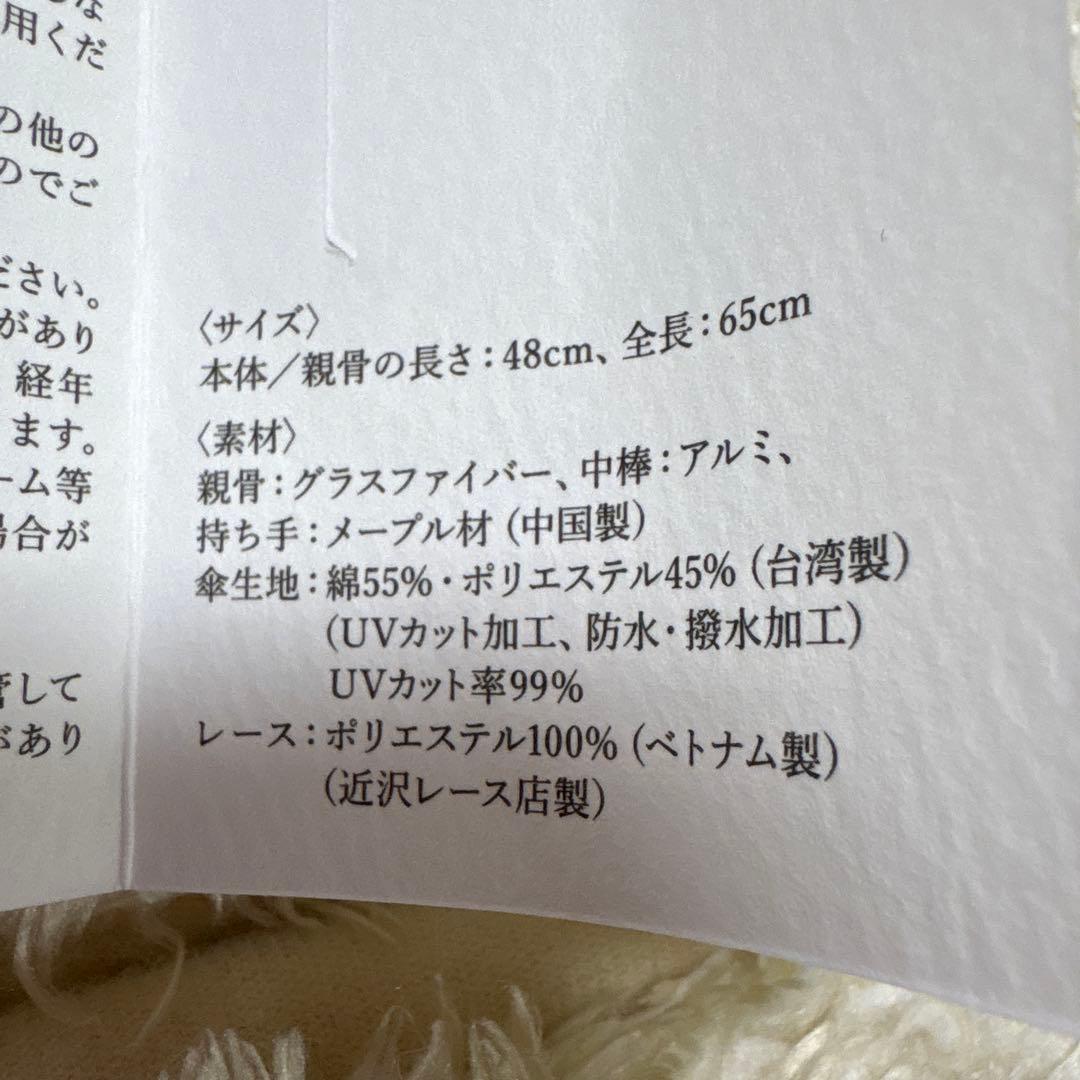 用くだ
の他の
のでご
ださい。
があり
経年
ます。
ーム等
場合が
管して
があり
〈サイズ〉
本体／親骨の長さ：48cm、全長：65cm
〈素材〉
親骨：グラスファイバー、中棒：アルミ、
持ち手：メープル材（中国製）
傘生地：綿55%・ポリエステル45%（台湾製）
（UVカット加工、防水・撥水加工）
UVカット率99%
レース：ポリエステル100%（ベトナム製）
（近沢レース店製）